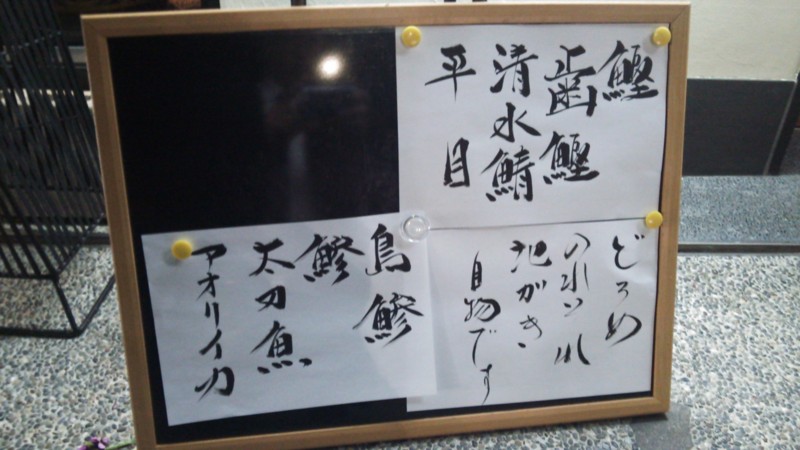 鰹
歯鰹
清水鯖
平目
どろめ
のれソレ
地がき
目物です
島鯵
鯵
太刀魚
アオリイカ